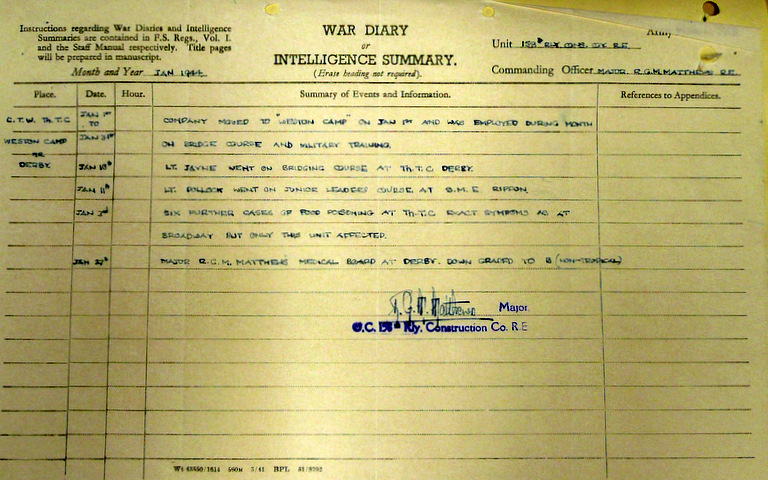 Instructions regarding War Diaries and Intelligence
Summaries are contained in F.S. Regs., Vol. I.
and the Staff Manual respectively. Title pages
will be prepared in manuscript.
Month and Year JAN 1944.
WAR DIARY
or
INTELLIGENCE SUMMARY.
(Erase heading not required).
Army
Unit 158th RLY. CONS. COY. R.E.
Commanding Officer MAJOR. R.G.M. MATTHEWS R.E.
Place. Date. Hour. Summary of Events and Information. References to Appendices.
C.T.W. Th.T.C JAN 1st TO COMPANY MOVED TO "WESTON CAMP" ON JAN 1st AND WAS EMPLOYED DURING MONTH
WESTON CAMP JAN 31st ON BRIDGE COURSE AND MILITARY TRAINING.
NR DERBY. JAN 10th LT. JAYNE WENT ON BRIDGING COURSE AT Th.T.C DERBY.
JAN 11th LT. POLLOCK WENT ON JUNIOR LEADERS COURSE AT S.M.E RIPPON.
JAN 2nd SIX FURTHER CASES OF FOOD POISONING AT Th.T.C EXACT SYMPTOMS AS AT
BROADWAY BUT ONLY THIS UNIT AFFECTED.
JAN 27th MAJOR R.G.M. MATTHEWS MEDICAL BOARD AT DERBY. DOWN GRADED TO B (NON-TROPICAL)
R.G.M. Matthews Major
O.C. 158th Rly. Construction Co. R.E
Wt 43450/1614 560M 3/41 BPL 51/8792